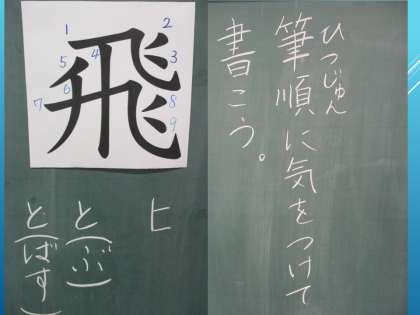 飛
1
2
3
4
5
6
7
8
9
ヒ
と(ぶ)
と(ばす)
ひつじゅん
筆順に気をつけて
書こう。